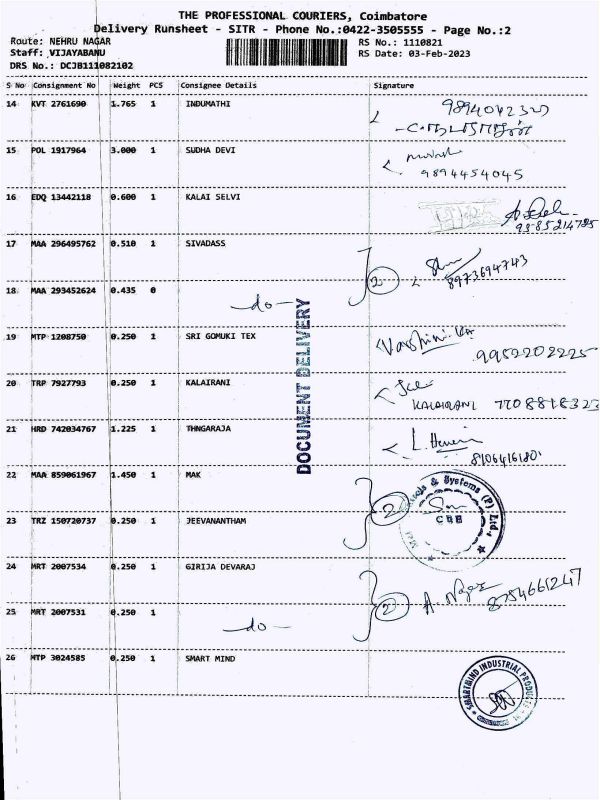 THE PROFESSIONAL COURIERS, Coimbatore
Delivery Runsheet - SITR - Phone No.:0422-3505555 - Page No.:2
Route: NEHRU NAGAR
RS No.: 1110821
Staff: VIJAYABANU
RS Date: 03-Feb-2023
DRS No.: DCJB111082102
S No Consignment No Weight PCS Consignee Details Signature
14 KVT 2761690 1.765 1 INDUMATHI
15 POL 1917964 3.000 1 SUDHA DEVI
9894454045
16 EDQ 13442118 0.600 1 KALAI SELVI
9585214785
17 MAA 296495762 0.510 1 SIVADASS
2 8973694743
18 MAA 293452624 0.435 0
-do-
DOCUMENT DELIVERY
19 MTP 1208750 0.250 1 SRI GOMUKI TEX
9952202225
20 TRP 7927793 0.250 1 KALAIRANI
KALAIRANI 7708818323
21 HRD 742034767 1.225 1 THNGARAJA
8106416180
22 MAA 859061967 1.450 1 MAK
2 & Systems (P) Ltd.,
CBE
23 TRZ 150720737 0.250 1 JEEVANANTHAM
24 MRT 2007534 0.250 1 GIRIJA DEVARAJ
2 8754661247
25 MRT 2007531 0.250 1
-do-
26 MTP 3024585 0.250 1 SMART MIND
SMARTMIND INDUSTRIAL PRODUCTS